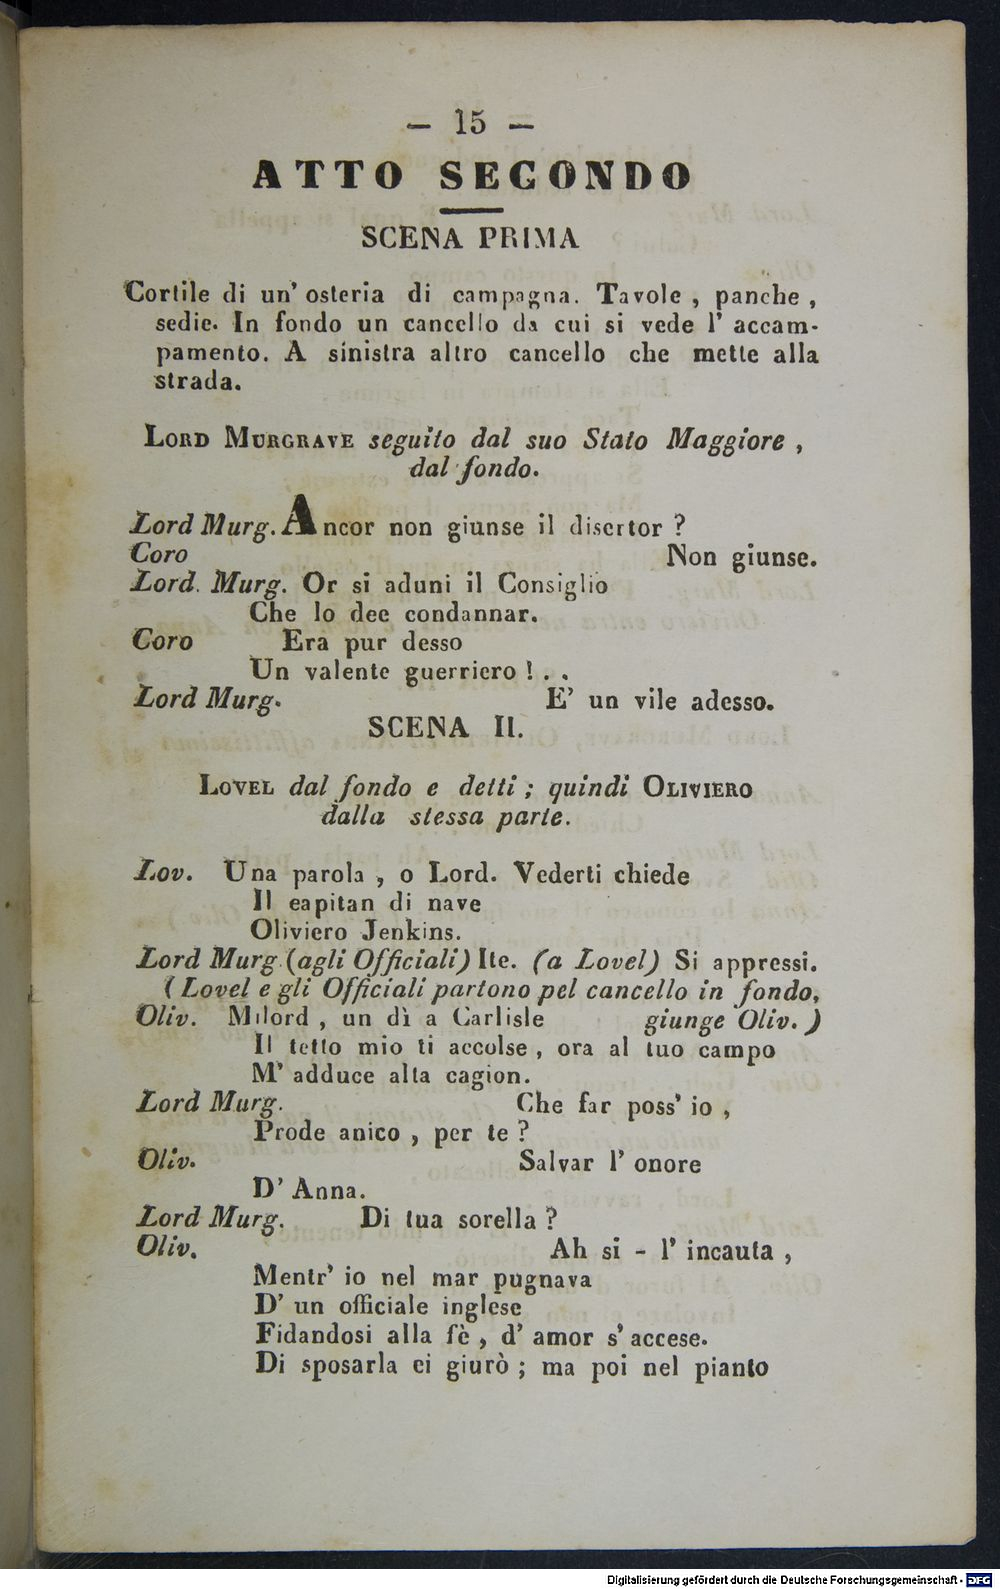 — 15 —
ATTO SECONDO
SCENA PRIMA
Cortile di un' osteria di campagna. Tavole , panche ,
sedie. In fondo un cancello da cui si vede l' accam-
pamento. A sinistra altro cancello che mette alla
strada.
LORD MURGRAVE seguito dal suo Stato Maggiore ,
dal fondo.
Lord Murg. Ancor non giunse il disertor ?
Coro Non giunse.
Lord. Murg. Or si aduni il Consiglio
Che lo dee condannar.
Coro Era pur desso
Un valente guerriero ! . .
Lord Murg. E' un vile adesso.
SCENA II.
LOVEL dal fondo e detti ; quindi OLIVIERO
dalla stessa parte.
Lov. Una parola , o Lord. Vederti chiede
Il eapitan di nave
Oliviero Jenkins.
Lord Murg. (agli Officiali) Ite. (a Lovel) Si appressi.
( Lovel e gli Officiali partono pel cancello in fondo,
Oliv. Milord , un dì a Carlisle giunge Oliv. )
Il tetto mio ti accolse , ora al tuo campo
M' adduce alta cagion.
Lord Murg. Che far poss' io ,
Prode anico , per te ?
Oliv. Salvar l' onore
D' Anna.
Lord Murg. Di tua sorella ?
Oliv. Ah si - l' incauta ,
Mentr' io nel mar pugnava
D' un officiale inglese
Fidandosi alla fè , d' amor s' accese.
Di sposarla ei giurò ; ma poi nel pianto
Digitalisierung gefördert durch die Deutsche Forschungsgemeinschaft - DFG